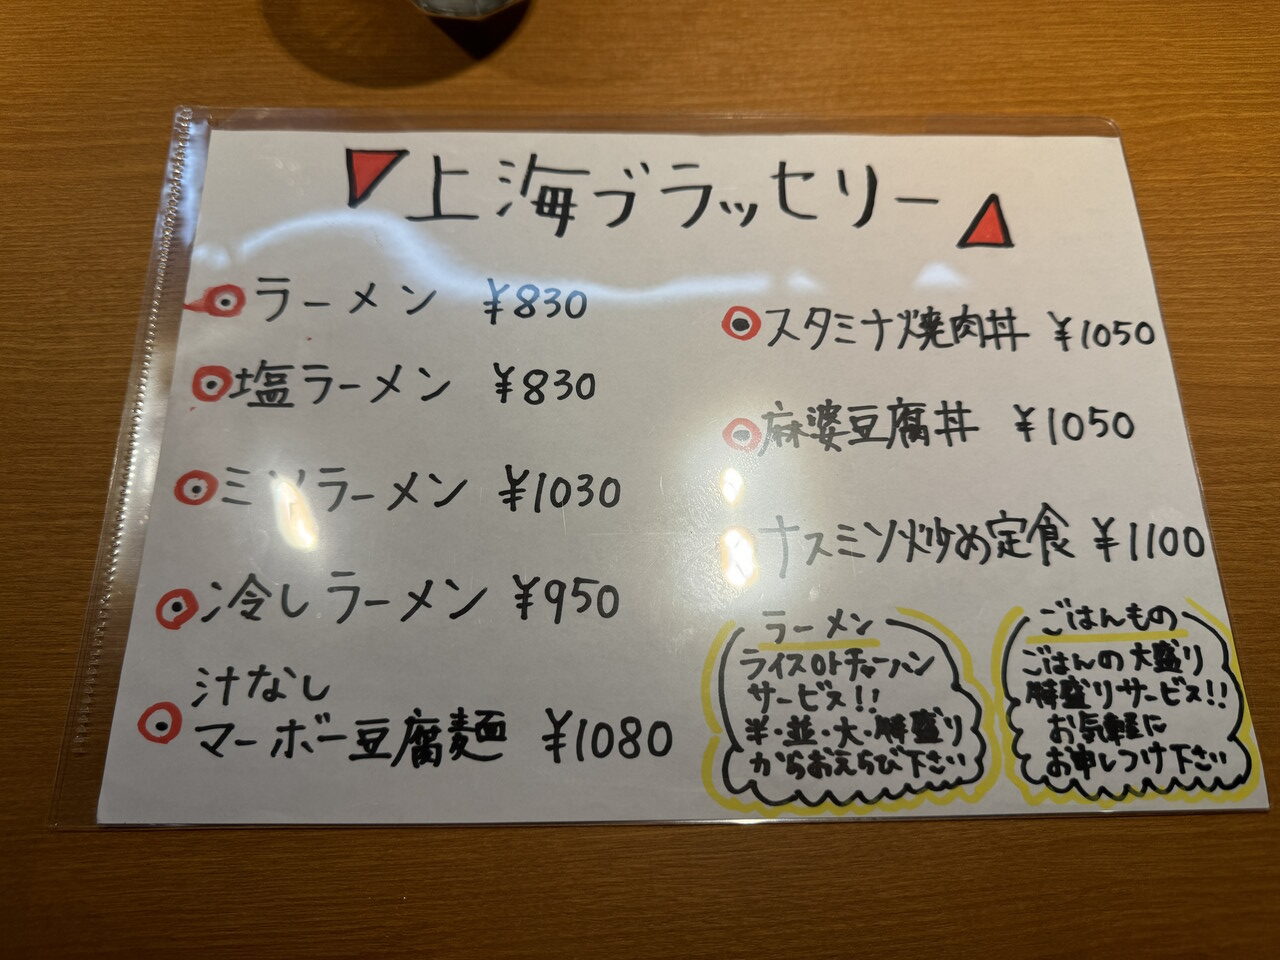 上海ブラッセリー
ラーメン ¥830
塩ラーメン ¥830
ミソラーメン ¥1030
冷しラーメン ¥950
汁なし
マーボー豆腐麺 ¥1080
スタミナ焼肉丼 ¥1050
麻婆豆腐丼 ¥1050
ナスミソ炒め定食 ¥1100
ラーメン
ライスorチャーハン
サービス!!
半・並・大・特盛り
からおえらび下さい
ごはんもの
ごはんの大盛り
特盛りサービス!!
お気軽に
お申しつけ下さい